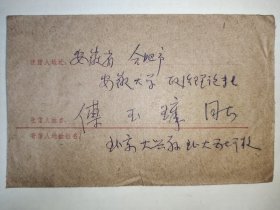 收信人地址: 安徽省 合肥市
安徽大学 政治理论系
收信人姓名: 傅玉璋 同志
寄信人地址姓名:
北京大兴县北大